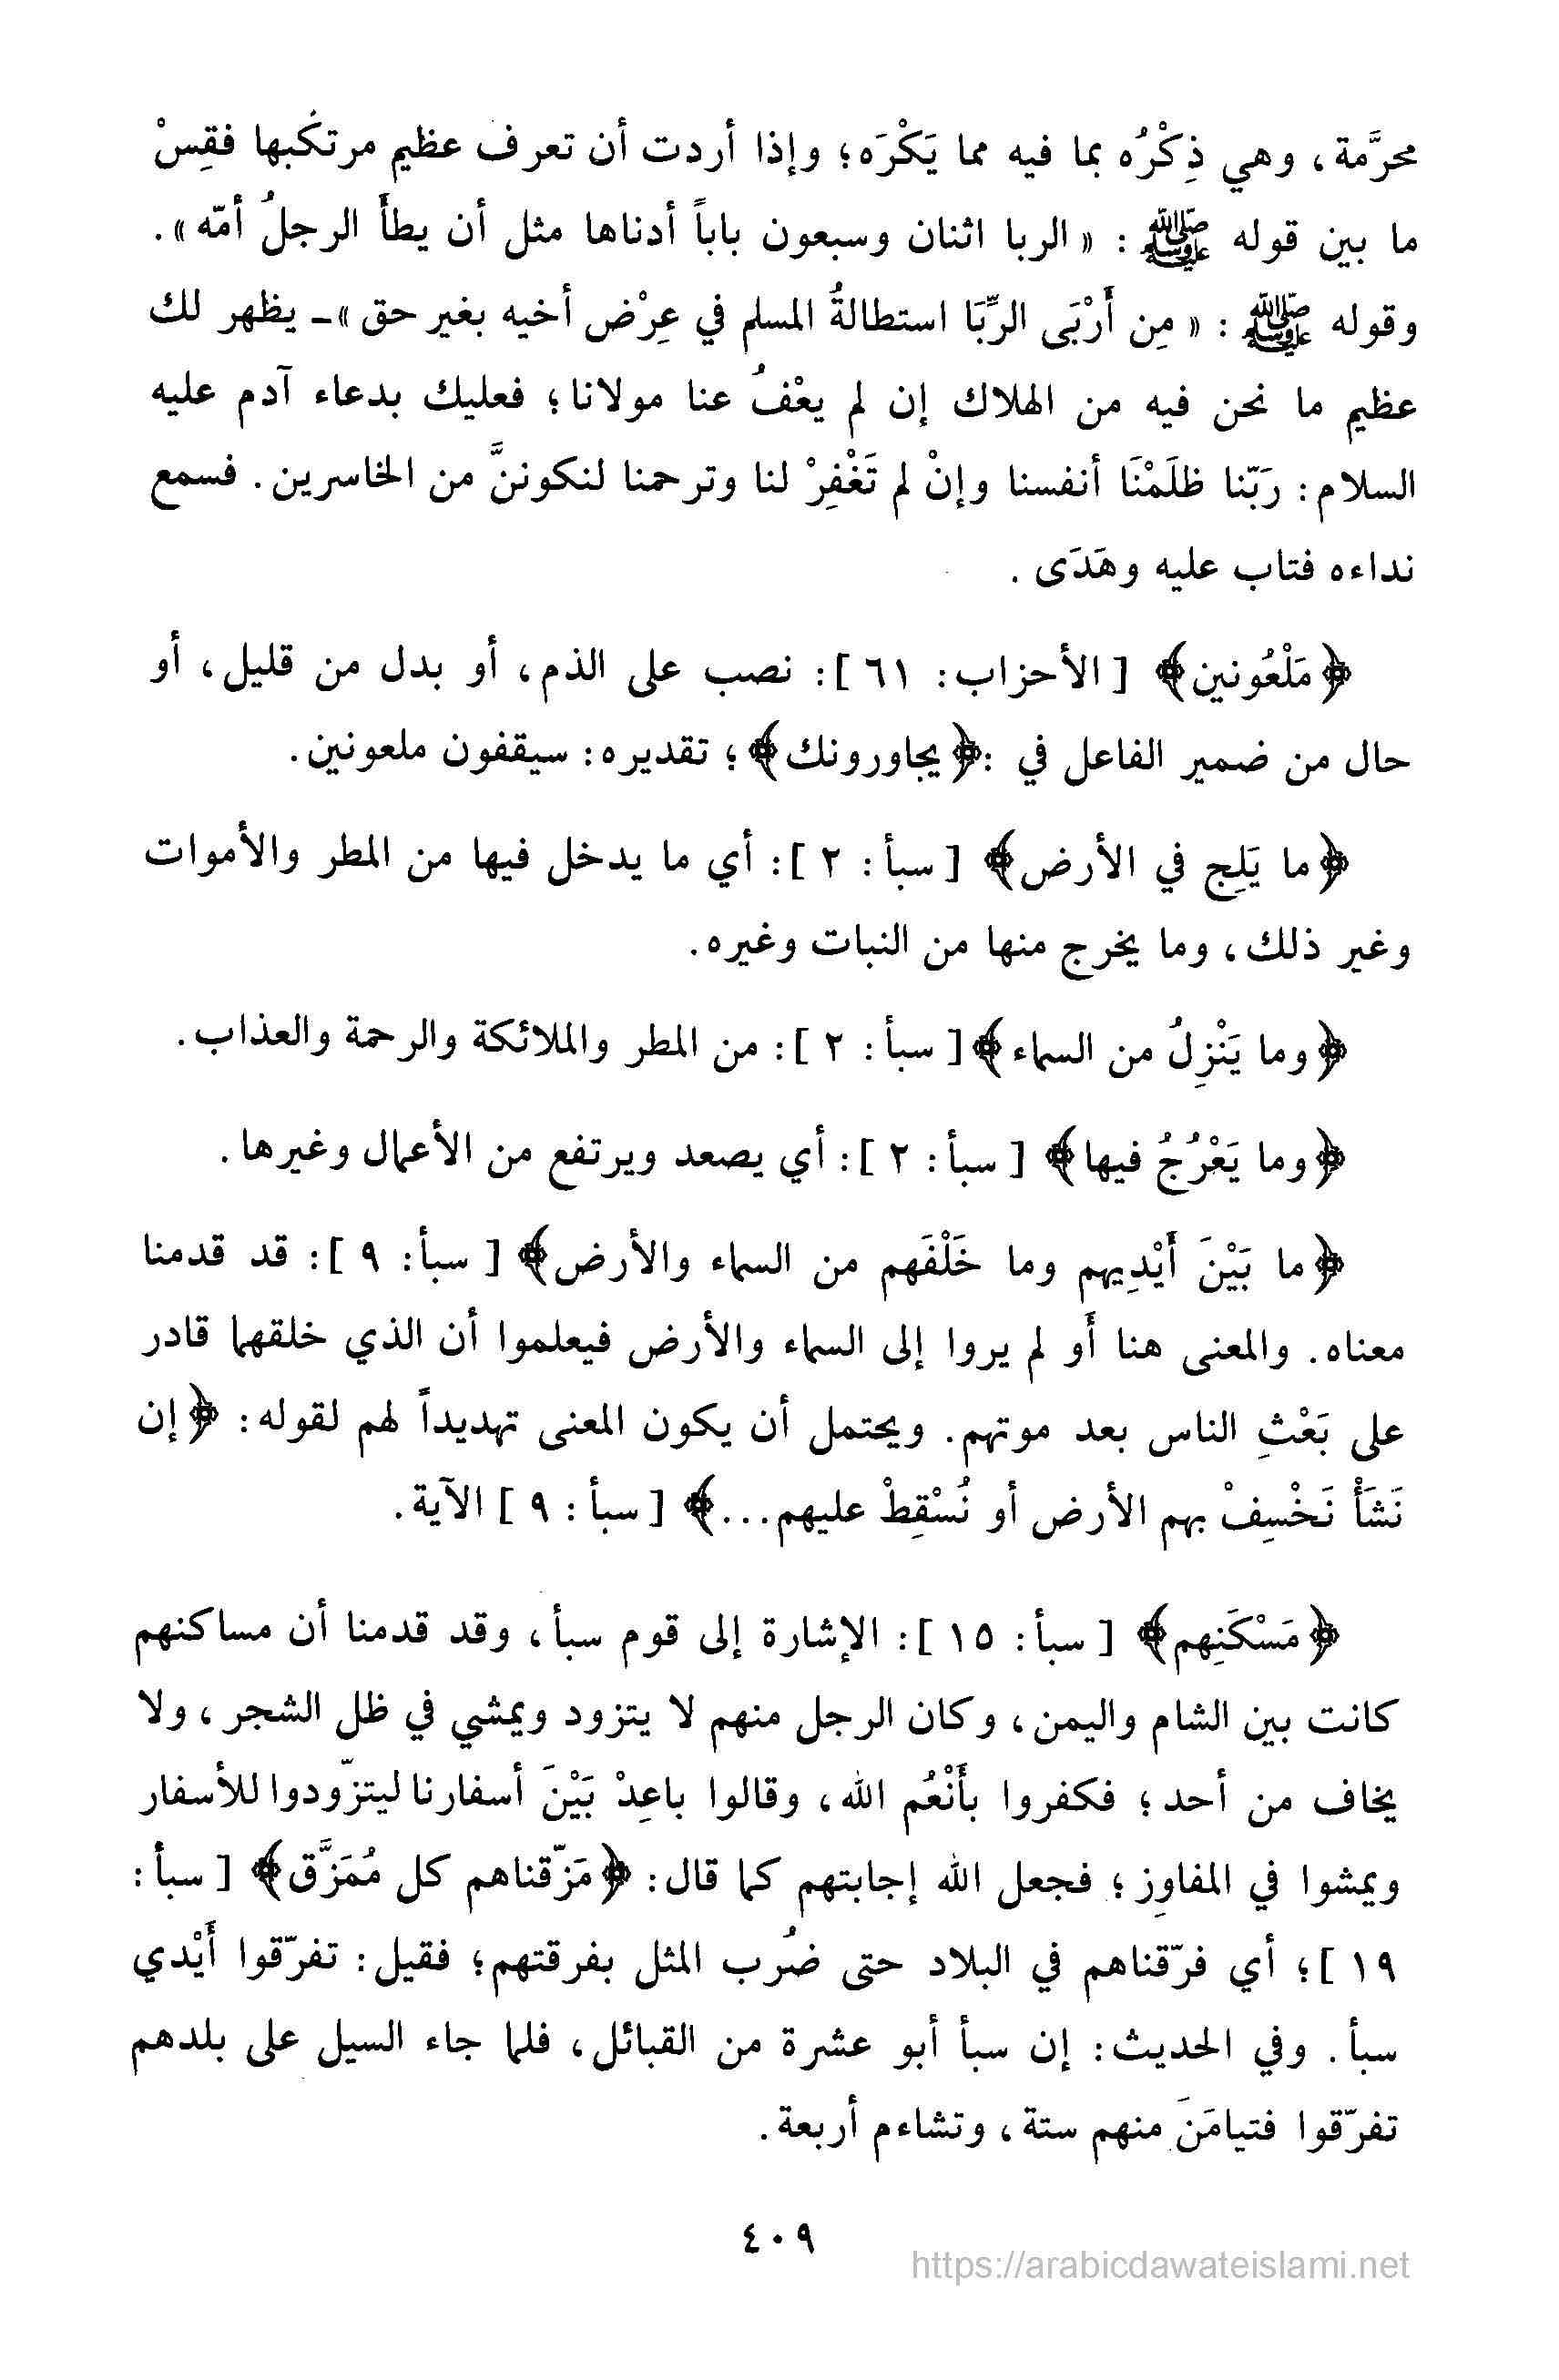 محرَّمة، وهي ذِكْرُه بما فيه مما يَكْرَه؛ وإذا أردت أن تعرف عظيم مرتكبها فقِسْ
ما بين قوله ﷺ : « الربا اثنان وسبعون باباً أدناها مثل أن يطأَ الرجلُ أمّه ».
وقوله ﷺ : « مِن أَرْبَى الرِّبَا استطالةُ المسلم في عِرْض أخيه بغير حق »ـ يظهر لك
عظيم ما نحن فيه من الهلاك إن لم يعْفُ عنا مولانا؛ فعليك بدعاء آدم عليه
السلام: رَبّنا ظلَمْنَا أنفسنا وإنْ لم تَغْفِرْ لنا وترحمنا لنكوننَّ من الخاسرين. فسمع
نداءه فتاب عليه وهَدَى .
﴿مَلْعُونين﴾ [ الأحزاب: ٦١ ]: نصب على الذم، أو بدل من قليل، أو
حال من ضمير الفاعل في :﴿يجاورونك﴾؛ تقديره: سيقفون ملعونين.
﴿ما يَلِج في الأرض﴾ [ سبأ: ٢ ]: أي ما يدخل فيها من المطر والأموات
وغير ذلك، وما يخرج منها من النبات وغيره.
﴿وما يَنْزِلُ من السماء﴾[ سبأ: ٢ ]: من المطر والملائكة والرحمة والعذاب.
﴿وما يَعْرُجُ فيها﴾ [ سبأ: ٢ ]: أي يصعد ويرتفع من الأعمال وغيرها.
﴿ما بَيْنَ أَيْدِيهم وما خَلْفَهم من السماء والأرض﴾ [ سبأ: ٩ ]: قد قدمنا
معناه. والمعنى هنا أَو لم يروا إلى السماء والأرض فيعلموا أن الذي خلقهما قادر
على بَعْثِ الناس بعد موتهم. ويحتمل أن يكون المعنى تهديداً لهم لقوله: ﴿إن
نَشَأْ نَخْسِفْ بهم الأرض أو نُسْقِطْ عليهم...﴾ [ سبأ: ٩ ] الآية.
﴿مَسْكَنِهم﴾ [ سبأ: ١٥ ]: الإشارة إلى قوم سبأ، وقد قدمنا أن مساكنهم
كانت بين الشام واليمن، وكان الرجل منهم لا يتزود ويمشي في ظل الشجر، ولا
يخاف من أحد؛ فكفروا بأَنْعُم الله، وقالوا باعِدْ بَيْنَ أسفارنا ليتزّودوا للأسفار
ويمشوا في المفاوِز؛ فجعل الله إجابتهم كما قال: ﴿مَزّقناهم كل مُمَزَّق﴾ [ سبأ:
١٩ ]؛ أي فرّقناهم في البلاد حتى ضُرب المثل بفرقتهم؛ فقيل: تفرّقوا أَيْدي
سبأ. وفي الحديث: إن سبأ أبو عشرة من القبائل، فلما جاء السيل على بلدهم
تفرّقوا فتيامَنَ منهم ستة، وتشاءم أربعة.
٤٠٩
https://arabicdawateislami.net